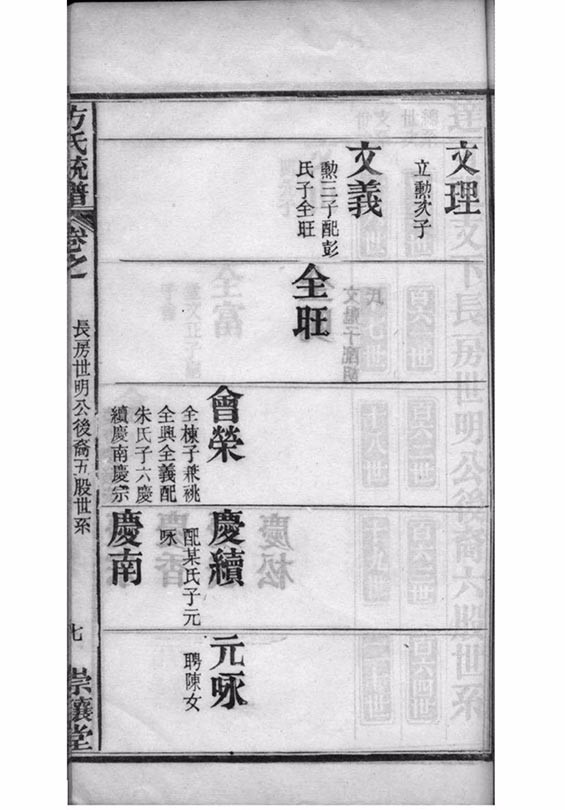 文理
立勳次子
文義
勳三子配彭
氏子全旺
全旺
會榮
全棟子兼祧
全興全義配
朱氏子六慶
續慶南慶宗
慶續
配某氏子元
咏
慶南
元咏
聘陳女
方氏統譜
卷之
長房世明公後裔五股世系
七
崇讓堂